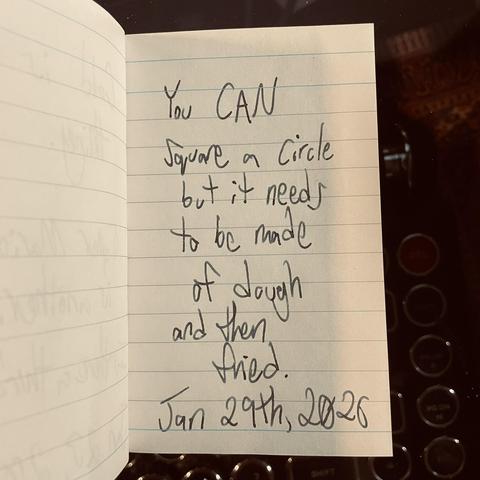 You CAN
Square a Circle
but it needs
to be made
of dough
and then
fried.
Jan 29th, 2026
SHIFT